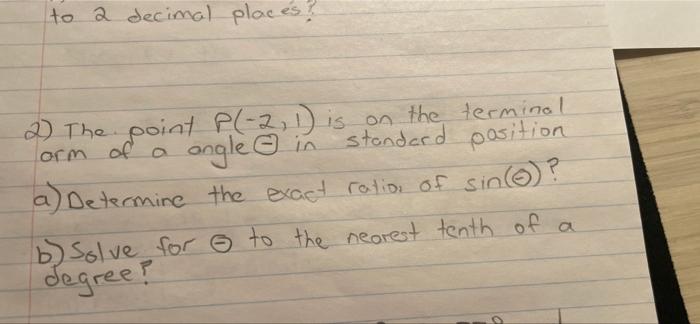 to 2 decimal places?
2) The point P(-2,1) is on the terminal
arm of a angle Θ in standard position
a) Determine the exact ratio, of sin(Θ)?
b) Solve for Θ to the nearest tenth of a
degree?